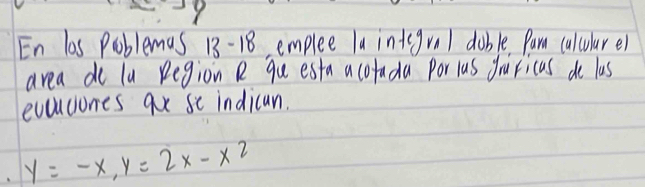 En los problemas 13-18 emplee la integral doble para calcular el
area de la Region R que esta acotada por las graficas de las
ecuaciones que se indican.
y = -x, y = 2x - x²